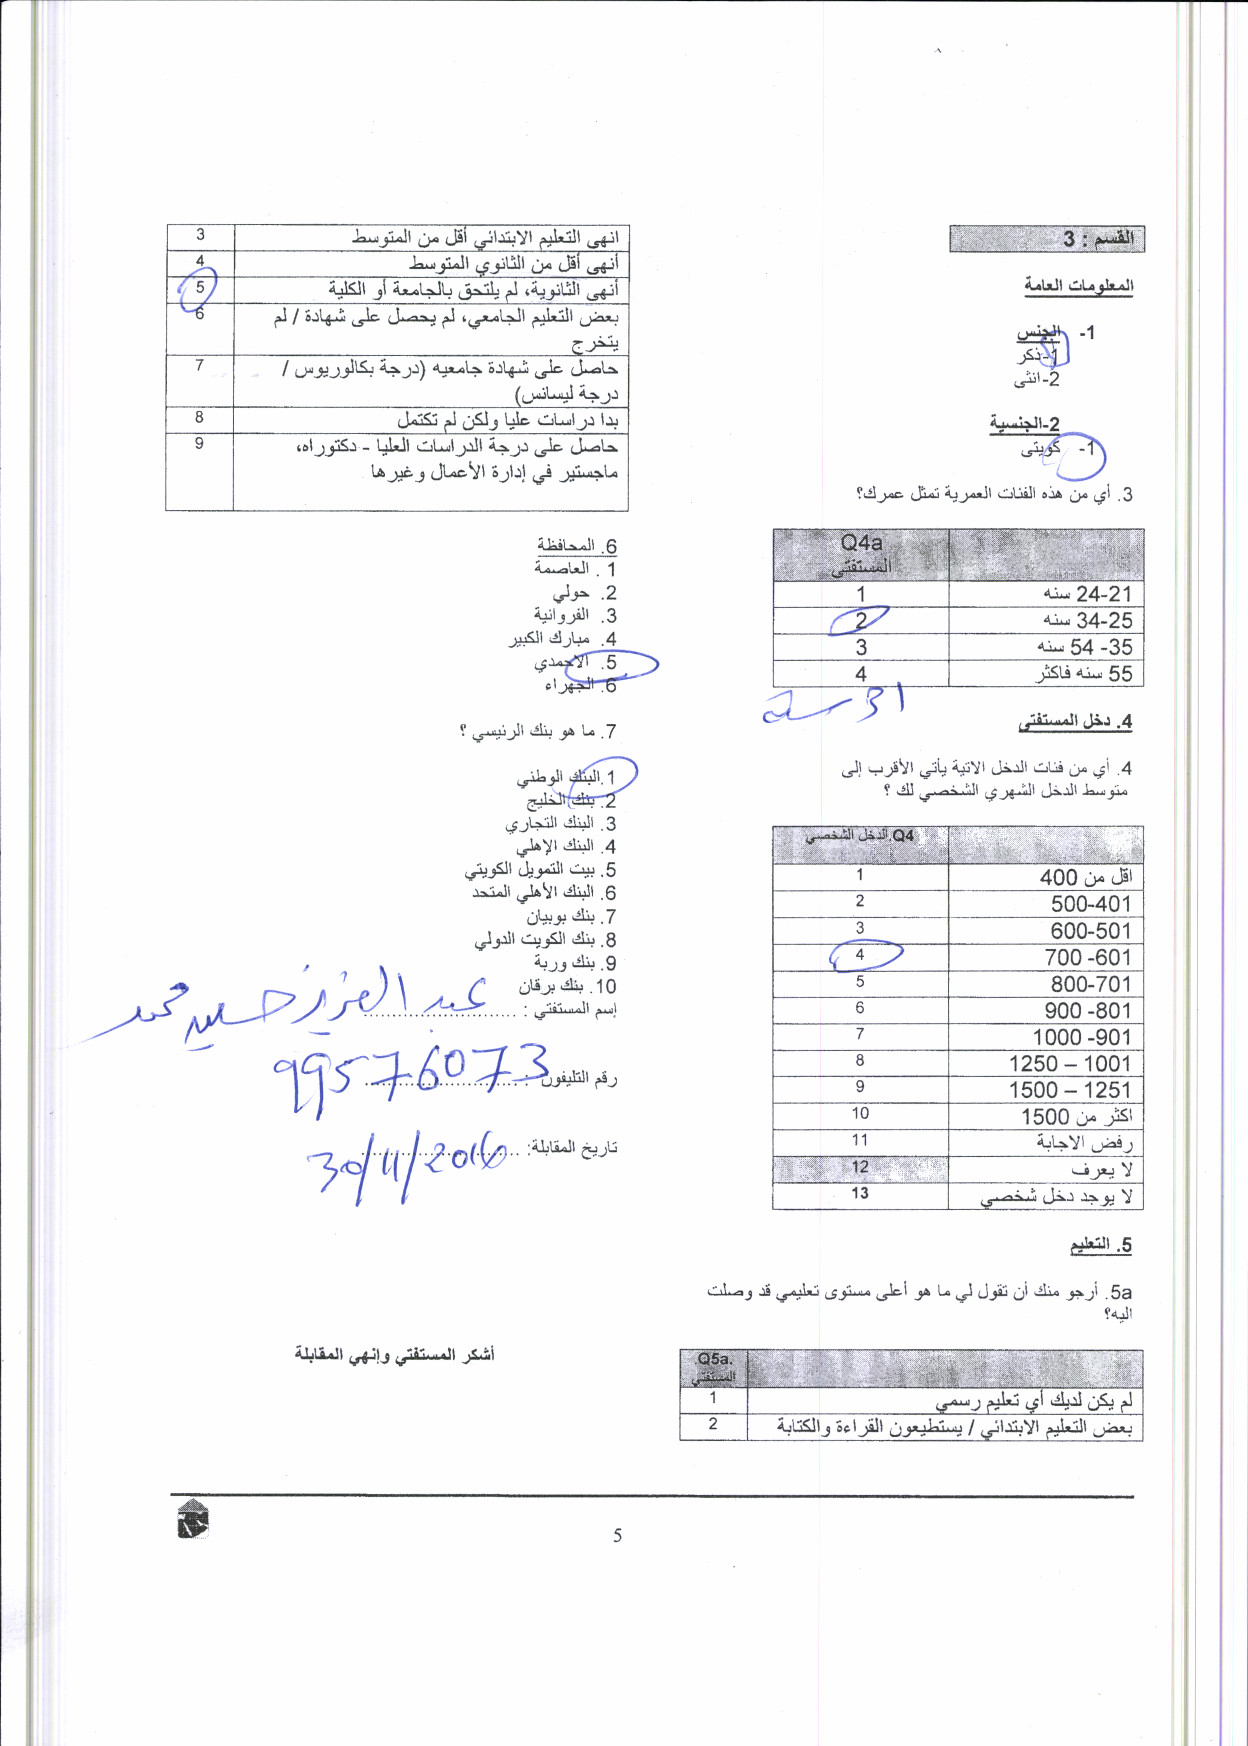 القسم : 3
المعلومات العامة
1- الجنس
1-ذكر
2-انثى
2-الجنسية
1- كويتى
3. أي من هذه الفئات العمرية تمثل عمرك؟
Q4a
المستفتى
24-21 سنه 1
34-25 سنه 2
35- 54 سنه 3
55 سنه فاكثر 4
31 سنة
4. دخل المستفتى
4. أي من فئات الدخل الاتية يأتي الأقرب إلى
متوسط الدخل الشهري الشخصي لك ؟
Q4.الدخل الشخصي
اقل من 400 1
500-401 2
600-501 3
700 -601 4
800-701 5
900 -801 6
1000 -901 7
1250 – 1001 8
1500 – 1251 9
اكثر من 1500 10
رفض الاجابة 11
لا يعرف 12
لا يوجد دخل شخصي 13
5. التعليم
5a. أرجو منك أن تقول لي ما هو أعلى مستوى تعليمي قد وصلت
اليه؟
Q5a.
المستفتي
لم يكن لديك أي تعليم رسمي 1
بعض التعليم الابتدائي / يستطيعون القراءة والكتابة 2
انهى التعليم الابتدائي أقل من المتوسط 3
أنهى أقل من الثانوي المتوسط 4
أنهى الثانوية، لم يلتحق بالجامعة أو الكلية 5
بعض التعليم الجامعي، لم يحصل على شهادة / لم 6
يتخرج
حاصل على شهادة جامعيه (درجة بكالوريوس / 7
درجة ليسانس)
بدا دراسات عليا ولكن لم تكتمل 8
حاصل على درجة الدراسات العليا - دكتوراه، 9
ماجستير في إدارة الأعمال وغيرها
6. المحافظة
1 . العاصمة
2. حولي
3. الفروانية
4. مبارك الكبير
5. الاحمدي
6. الجهراء
7. ما هو بنك الرئيسي ؟
1.البنك الوطني
2. بنك الخليج
3. البنك التجاري
4. البنك الإهلي
5. بيت التمويل الكويتي
6. البنك الأهلي المتحد
7. بنك بوبيان
8. بنك الكويت الدولي
9. بنك وربة
10. بنك برقان
إسم المستفتي : عبد العزيز حسين محمد
رقم التليفون : 99576073
تاريخ المقابلة: 30/11/2016
أشكر المستفتي وإنهي المقابلة
5